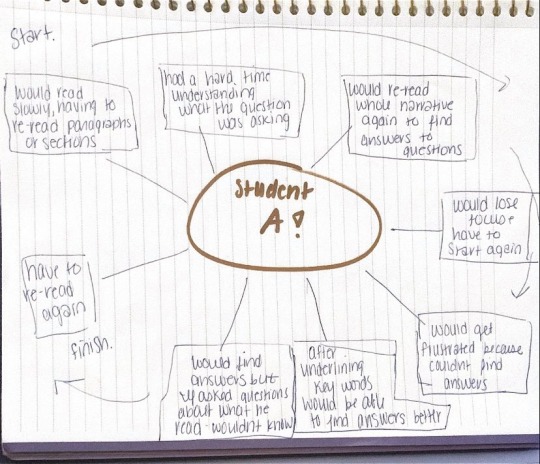 Start.
would read
slowly, having to
re-read paragraphs
or sections
had a hard time
understanding
what the question
was asking
would re-read
whole narrative
again to find
answers to
questions
would lose
focus
have to
start again
would get
frustrated because
couldnt find
answers
after
underlining
key words
would be able
to find answers better
would find
answers but
if asked questions
about what he
read - wouldnt know
have to
re-read
again
finish.
Student
A!